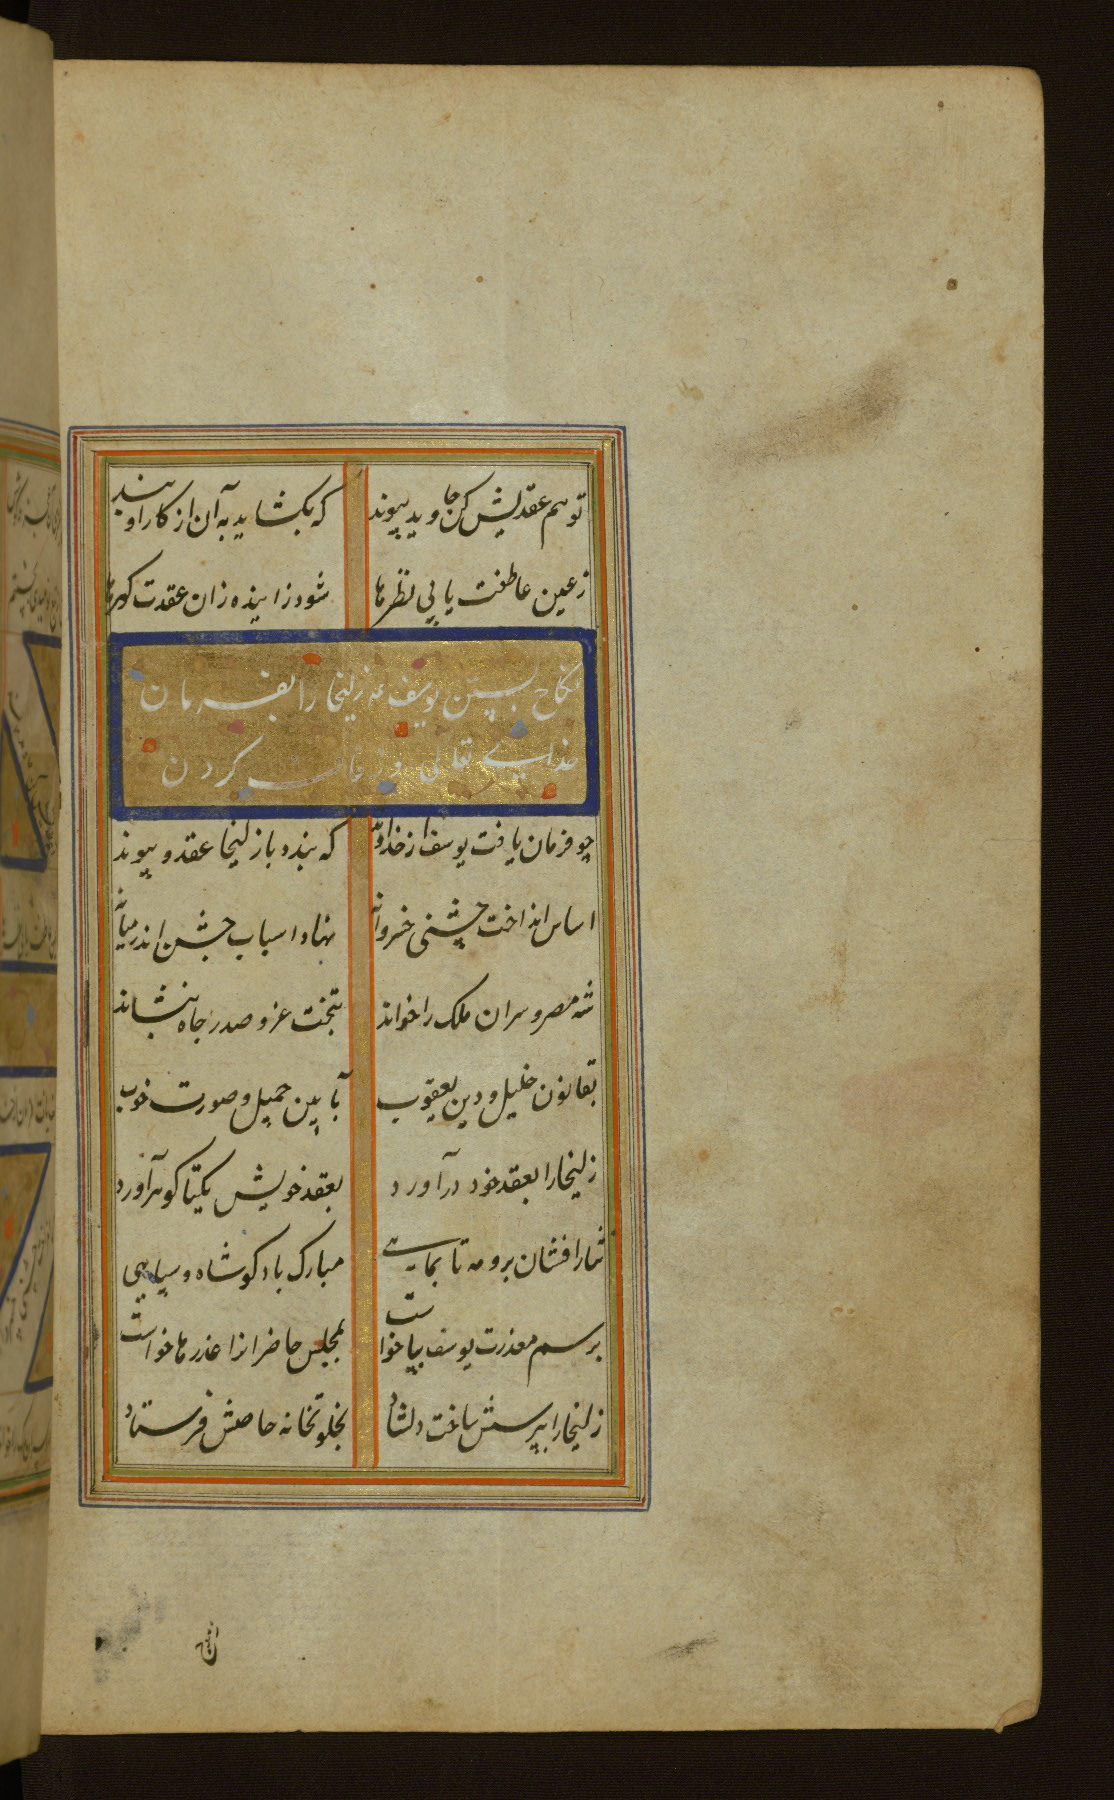 تو هم عقدیش کن جاوید پیوند که بکشاید به آن از کار او بند
ز عین عاطفت یابی نظرها شود زاینده زان عقدت کهرها
نکاح بستن یوسف ع زلیخا را بفرمان
خدای تعالی و زفاف کردن
چو فرمان یافت یوسف از خداوند که بندد با زلیخا عقد و پیوند
اساس انداخت جشنی خسروانه نهاد اسباب جشن اندر میانه
شه مصر و سران ملک را خواند بتخت عز و صدر جاه بنشاند
بقانون خلیل و دین یعقوب بآیین جمیل و صورت خوب
زلیخا را بعقد خود درآورد بعقد خویش یکتا کوهر آورد
نثار افشان برو مه تا بماهی مبارک باد کو شاه و سپاهی
برسم معذرت یوسف بپا خواست بمجلس حاضرانرا عذرها خواست
زلیخا را بپرسش ساخت دلشاد بخلوتخانه خاصش فرستاد